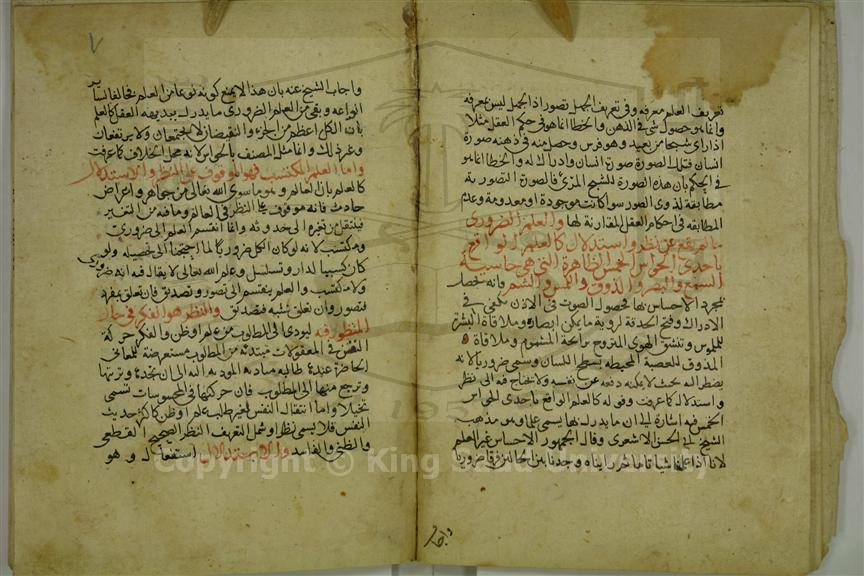 تعريف العلم معرفه وفي تعريف الجهل تصور اذ الجهل ليس معرفه
وانما هو حصول شي في الذهن والخطا انما هو في حكم العقل مثلا
اذا راي شبحا من بعيد وهو فرس وحصل منه في ذهنه صورة
انسان فتلك الصورة صورة انسان وادراك له والخطا انما هو
في الحكم بان هذه الصورة للشبح المرئي فالصورة التصورية
مطابقة لذوي الصور سوا كانت موجودة او معدومة وعدم
المطابقه في احكام العقل المقارنة لها والعلم الضروري
ما لم يقع عن نظر واستدلال كالعلم الواقع
باحدى الحواس الخمس الظاهرة التي هي حاسة
السمع والبصر والذوق واللمس والشم فانه يحصل
بمجرد الاحساس بها فحصول الصوت في الاذن يكفي في
الادراك وفتح الحدقة لروية ما يمكن ابصاره وملاقاة البشرة
للملموس وتنشق الهوى المتروح برائحة المشموم وملاقاة
المذوق للعصبة المحيطه بسطح اللسان وسمي ضروريا لانه
يضطر اليه بحيث لا يمكنه دفعه عن نفسه ولا يحتاج فيه الى نظر
واستدلال كما عرفت وقوله كالعلم الواقع باحدى الحواس
الخمس فيه اشارة الى ان ما يدرك بها يسمى علما وهو مذهب
الشيخ ابي الحسن الاشعري وقال الجمهور الاحساس غير العلم
لانا اذا علمنا شيا تاما ثم رايناه وجدنا بين الحالتين فرقا ضروريا
واجاب
٧
واجاب الشيخ عنه بان هذا لا يمنع كونه نوعا من العلم مخالفا لساير
انواعه وبقي من العلم الضروري ما يدرك ببديهه العقل كالعلم
بان الكل اعظم من الجزء والنقيضان لا يجتمعان ولا يرتفعان
وغير ذلك وانما مثل المصنف بالحواس لانه محل الخلاف كما عرفت
واما العلم المكتسب فهو الموقوف على النظر والاستدلال
كالعلم بان العالم وهو ما سوى الله تعالى من جواهر واعراض
حادث فانه موقوف على النظر في العالم وما فيه من التغير
فينتقل من تغيره الى حدوثه وانما انقسم العلم الى ضروري
ومكتسب لانه لو كان الكل ضروريا لما احتجنا الى تحصيله ولو
كان كسبيا لدار وتسلسل وعلم الله تعالى لا يقال فيه انه ضروري
ولا مكتسب والعلم ينقسم الى تصور وتصديق فان تعلق بمفرد
فتصور وان تعلق بنسبه فتصديق والنظر هو الفكر في حال
المنظور فيه ليودي الى المطلوب من علم او ظن والفكر حركة
النفس في المعقولات مبتدئه من المطلوب مستعرضة للمعاني
الحاضرة عندها طالبة مباديه المودية اليه الى ان تجدها وترتبها
وترجع منها الى المطلوب فان حركتها في المحسوسات تسمى
تخيلا واما انتقال النفس لغير طلب علم او ظن كاكثر حديث
النفس فلا يسمى نظرا وشمل التعريف النظر الصحيح القطعي
والظني والفاسد والاستدلال استفعال وهو
Copyright © King Saud University